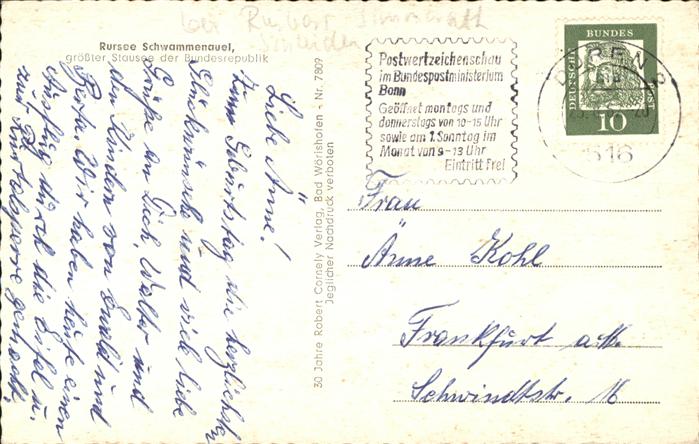 bei Ruhest
Schleiden
Rursee Schwammenauel,
größter Stausee der Bundesrepublik
Liebe Änne!
Zum Geburtstag die herzlichsten
Glückwünsche und viele liebe
Grüße an Dich, Walter und
den Kindern von Ewald und
Berta. Wir haben heute einen
Ausflug durch die Eifel u.
zur Rurtalsperre gemacht.
30 Jahre Robert Cornely Verlag, Bad Wörishofen - Nr. 7809
Jeglicher Nachdruck verboten
Postwertzeichenschau
im Bundespostministerium
Bonn
Geöffnet montags und
donnerstags von 10-15 Uhr
sowie am 1. Sonntag im
Monat von 9-13 Uhr
Eintritt frei
DÜREN 2
516
DEUTSCHE BUNDESPOST
10
Frau
Änne Kohl
Frankfurt a.M.
Schwindtstr. 16